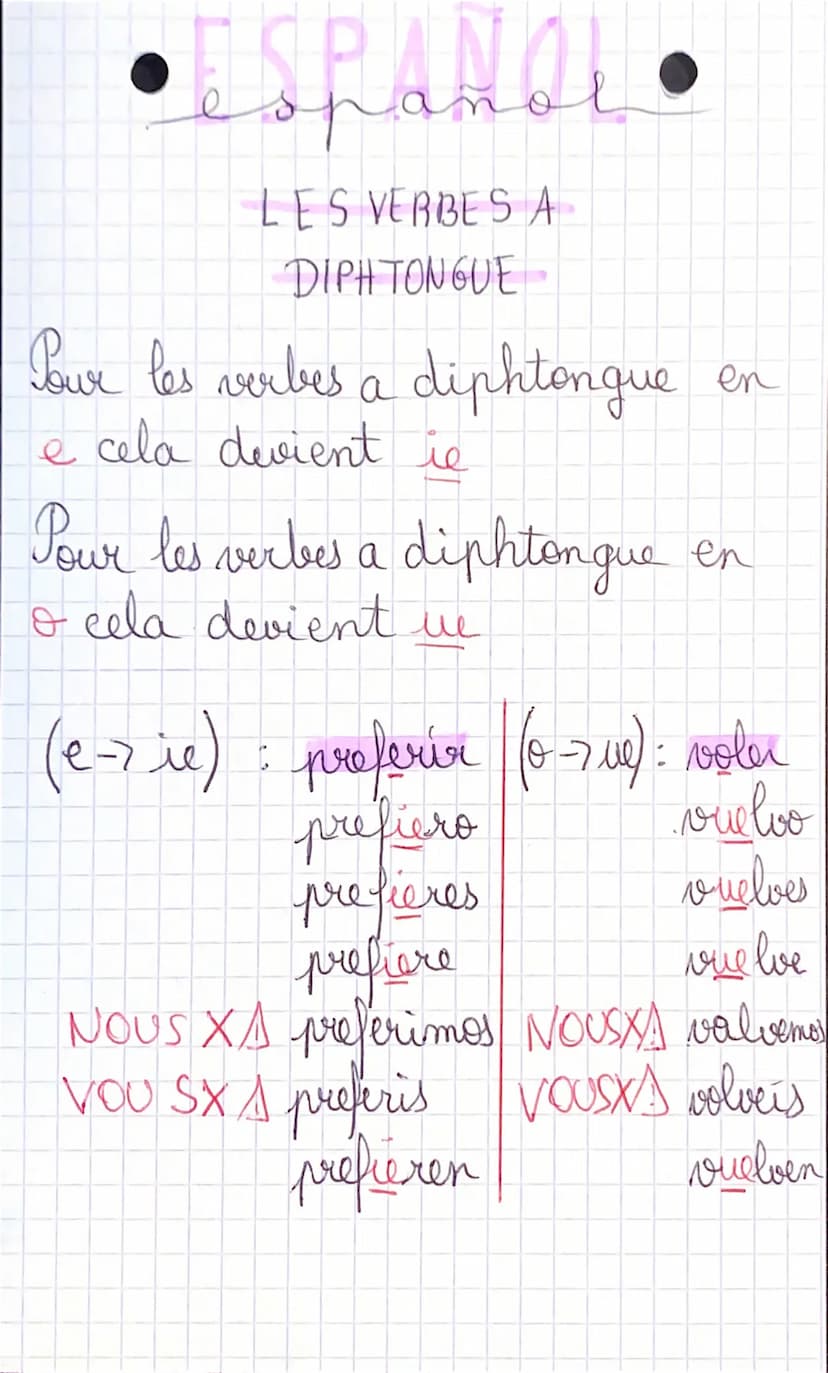 ESPAÑOL
español
LES VERBES A
DIPHTONGUE
Pour les verbes a diphtongue en
e cela devient ie
Pour les verbes a diphtongue en
o cela devient ue
(e → ie) : preferir (o → ue) : voler
prefiero vuelvo
prefieres vuelves
prefiere vuelve
NOUS X ⚠ preferimos NOUS X ⚠ valvemos
VOUS X ⚠ preferis VOUS X ⚠ volveis
prefieren vuelven